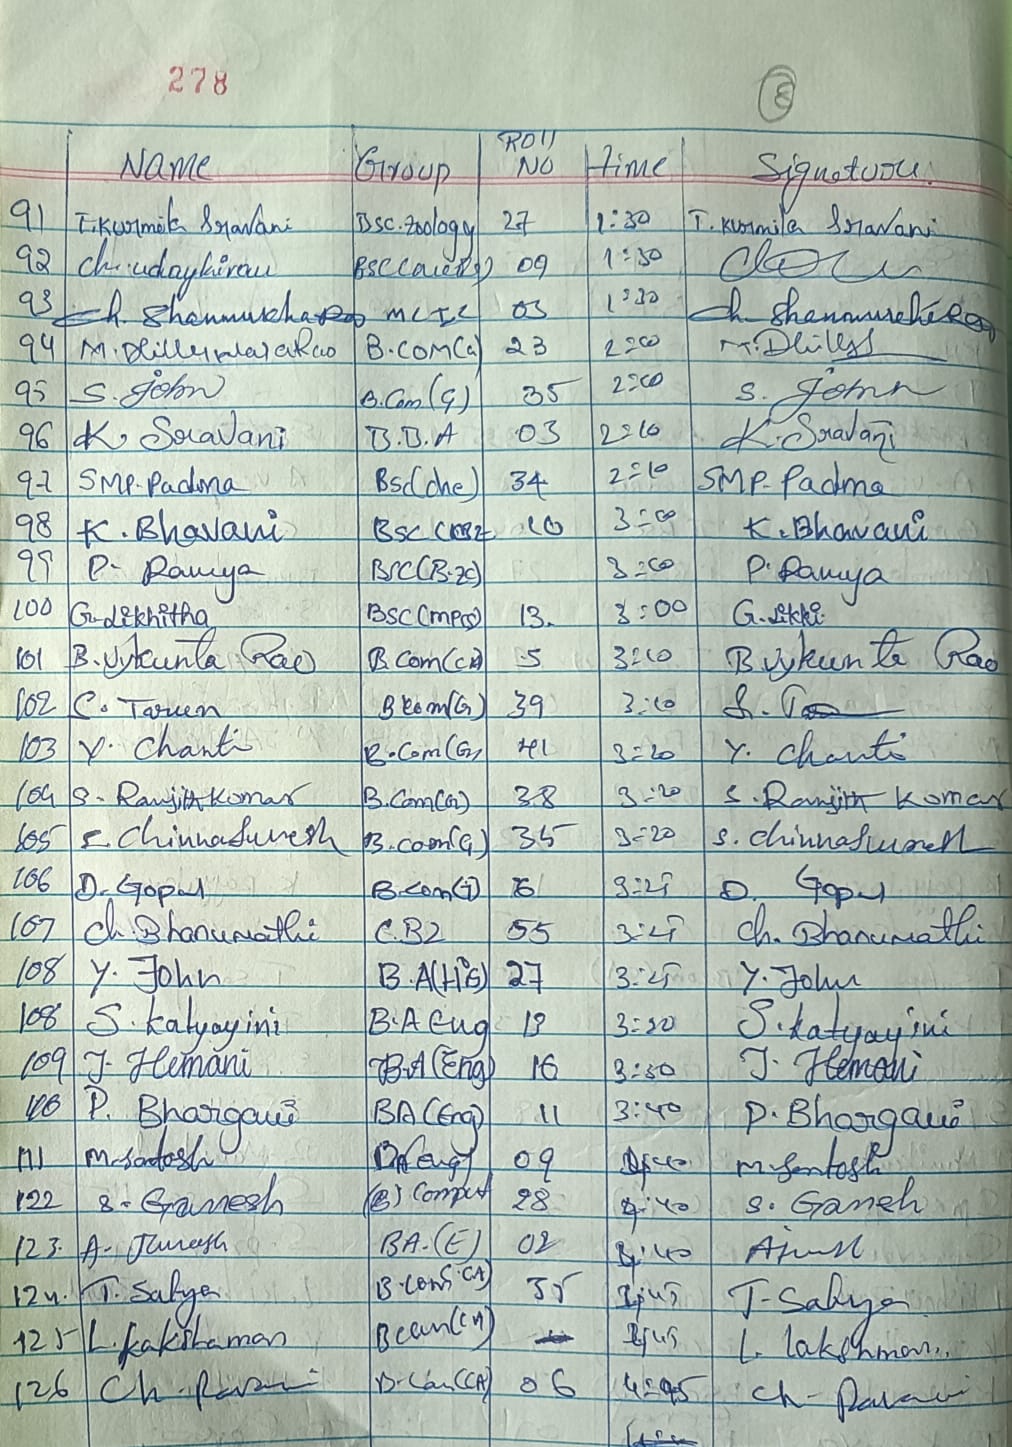 278 8
Name Group Roll No Time Signature
91 T. Kurmila Sravani Bsc. Zoology 27 1:30 T. Kurmila Sravani
92 Ch. udaykiran BSC 09 1:30
93 Ch. Shanmukha 03 1:30 Ch. Shanmukha
94 M. B.COM(G) 23 2:00
95 S. John B.Com(G) 35 2:00 S. John
96 K. Sravani B.B.A 03 2:10 K. Sravani
97 SMP. Padma Bsc(che) 34 2:10 SMP. Padma
98 K. Bhavani BSC CBZ 10 3:00 K. Bhavani
99 P. Ramya BSC(B.ZC) 3:00 P. Ramya
100 G. Likhitha BSC(mpcs) 13. 3:00 G. Likki
101 B. Vykunta Rao B.Com(CA) 5 3:10 B. Vykunta Rao
102 S. Tarun B Com(G) 39 3:10
103 Y. Chanti B.Com(G) 41 3:20 Y. Chanti
104 S. Ranjith Komar B.Com(G) 38 3:20 S. Ranjith Komar
105 S. Chinnasuresh B.com(G) 35 3:20 S. Chinnasuresh
106 D. Gopal B com(G) 3:25 D. Gopal
107 Ch. Bhanumathi C.BZ 55 3:25 Ch. Bhanumathi
108 Y. John B.A(His) 27 3:25 Y. John
108 S. Katyayini B.A Eng 19 3:30 S. Katyayini
109 J. Hemani B.A(Eng) 16 3:30 J. Hemani
110 P. Bhargavi BA(Eng) 11 3:40 P. Bhargavi
111 M. Santosh BA Eng 09 :40 M. Santosh
122 S. Ganesh 28 :40 S. Ganesh
123. A. BA.(E) 02 :40
124. T. Satya B.com (CA) 35 :45 T. Satya
125 L. Lakshaman Bcom(CA) :45 L. Lakshman..
126 Ch. Pavani B.Com(CA) 06 4:45 Ch. Pavani